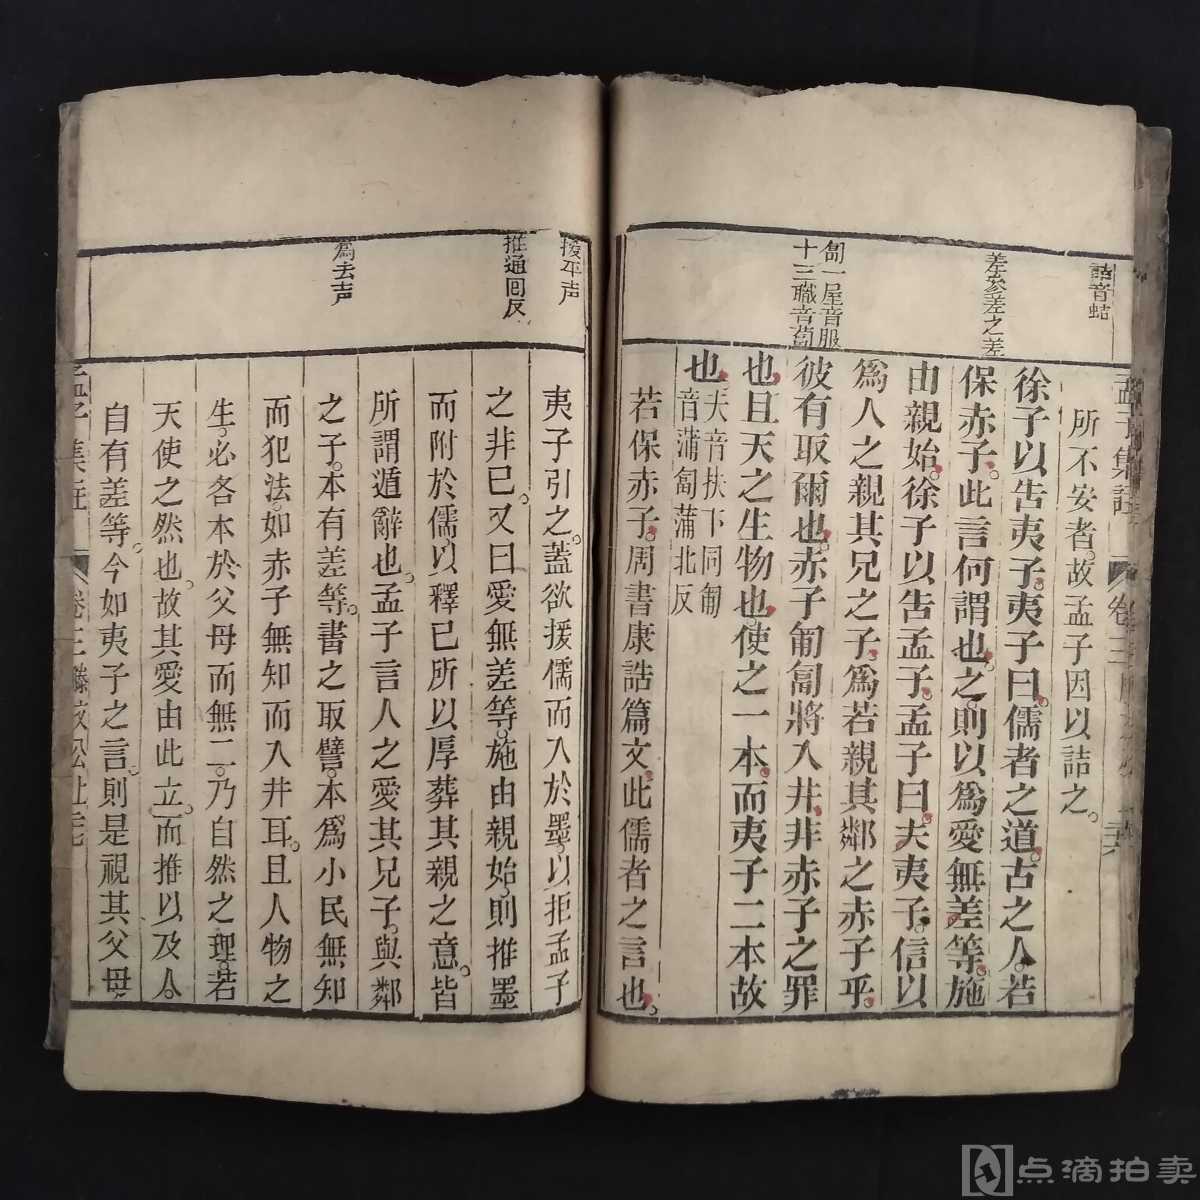 詰音蛄
差參差之差
匐一屋音服
十三職音匐
孟子集註
卷三
所不安者。故孟子因以詰之。
徐子以吿夷子。夷子曰。儒者之道。古之人。若
保赤子。此言何謂也。之則以爲愛無差等。施
由親始。徐子以吿孟子。孟子曰。夫夷子。信以
爲人之親其兄之子。爲若親其鄰之赤子乎。
彼有取爾也。赤子匍匐將入井。非赤子之罪
也。且天之生物也。使之一本。而夷子二本故
也。夫音扶下同匍
音蒲匐蒲北反
若保赤子。周書康誥篇文。此儒者之言也。
援平声
推通回反
爲去声
夷子引之。蓋欲援儒而入於墨。以拒孟子
之非已。又曰愛無差等。施由親始。則推墨
而附於儒。以釋已所以厚葬其親之意。皆
所謂遁辭也。孟子言人之愛其兄子。與鄰
之子。本有差等。書之取譬。本爲小民無知
而犯法。如赤子無知而入井耳。且人物之
生。必各本於父母而無二。乃自然之理。若
天使之然也。故其愛由此立。而推以及人。
自有差等。今如夷子之言。則是視其父母
孟子集註
卷三滕文公上
点滴拍卖